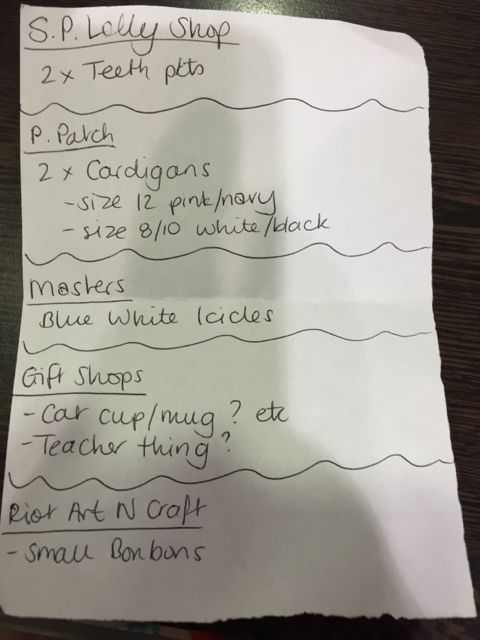 S.P. Lolly Shop
2 x Teeth pkts
P. Patch
2 x Cardigans
- size 12 pink/navy
- size 8/10 white/black
Masters
Blue White Icicles
Gift Shops
- Car cup/mug ? etc
- Teacher thing ?
Riot Art N Craft
- Small Bonbons